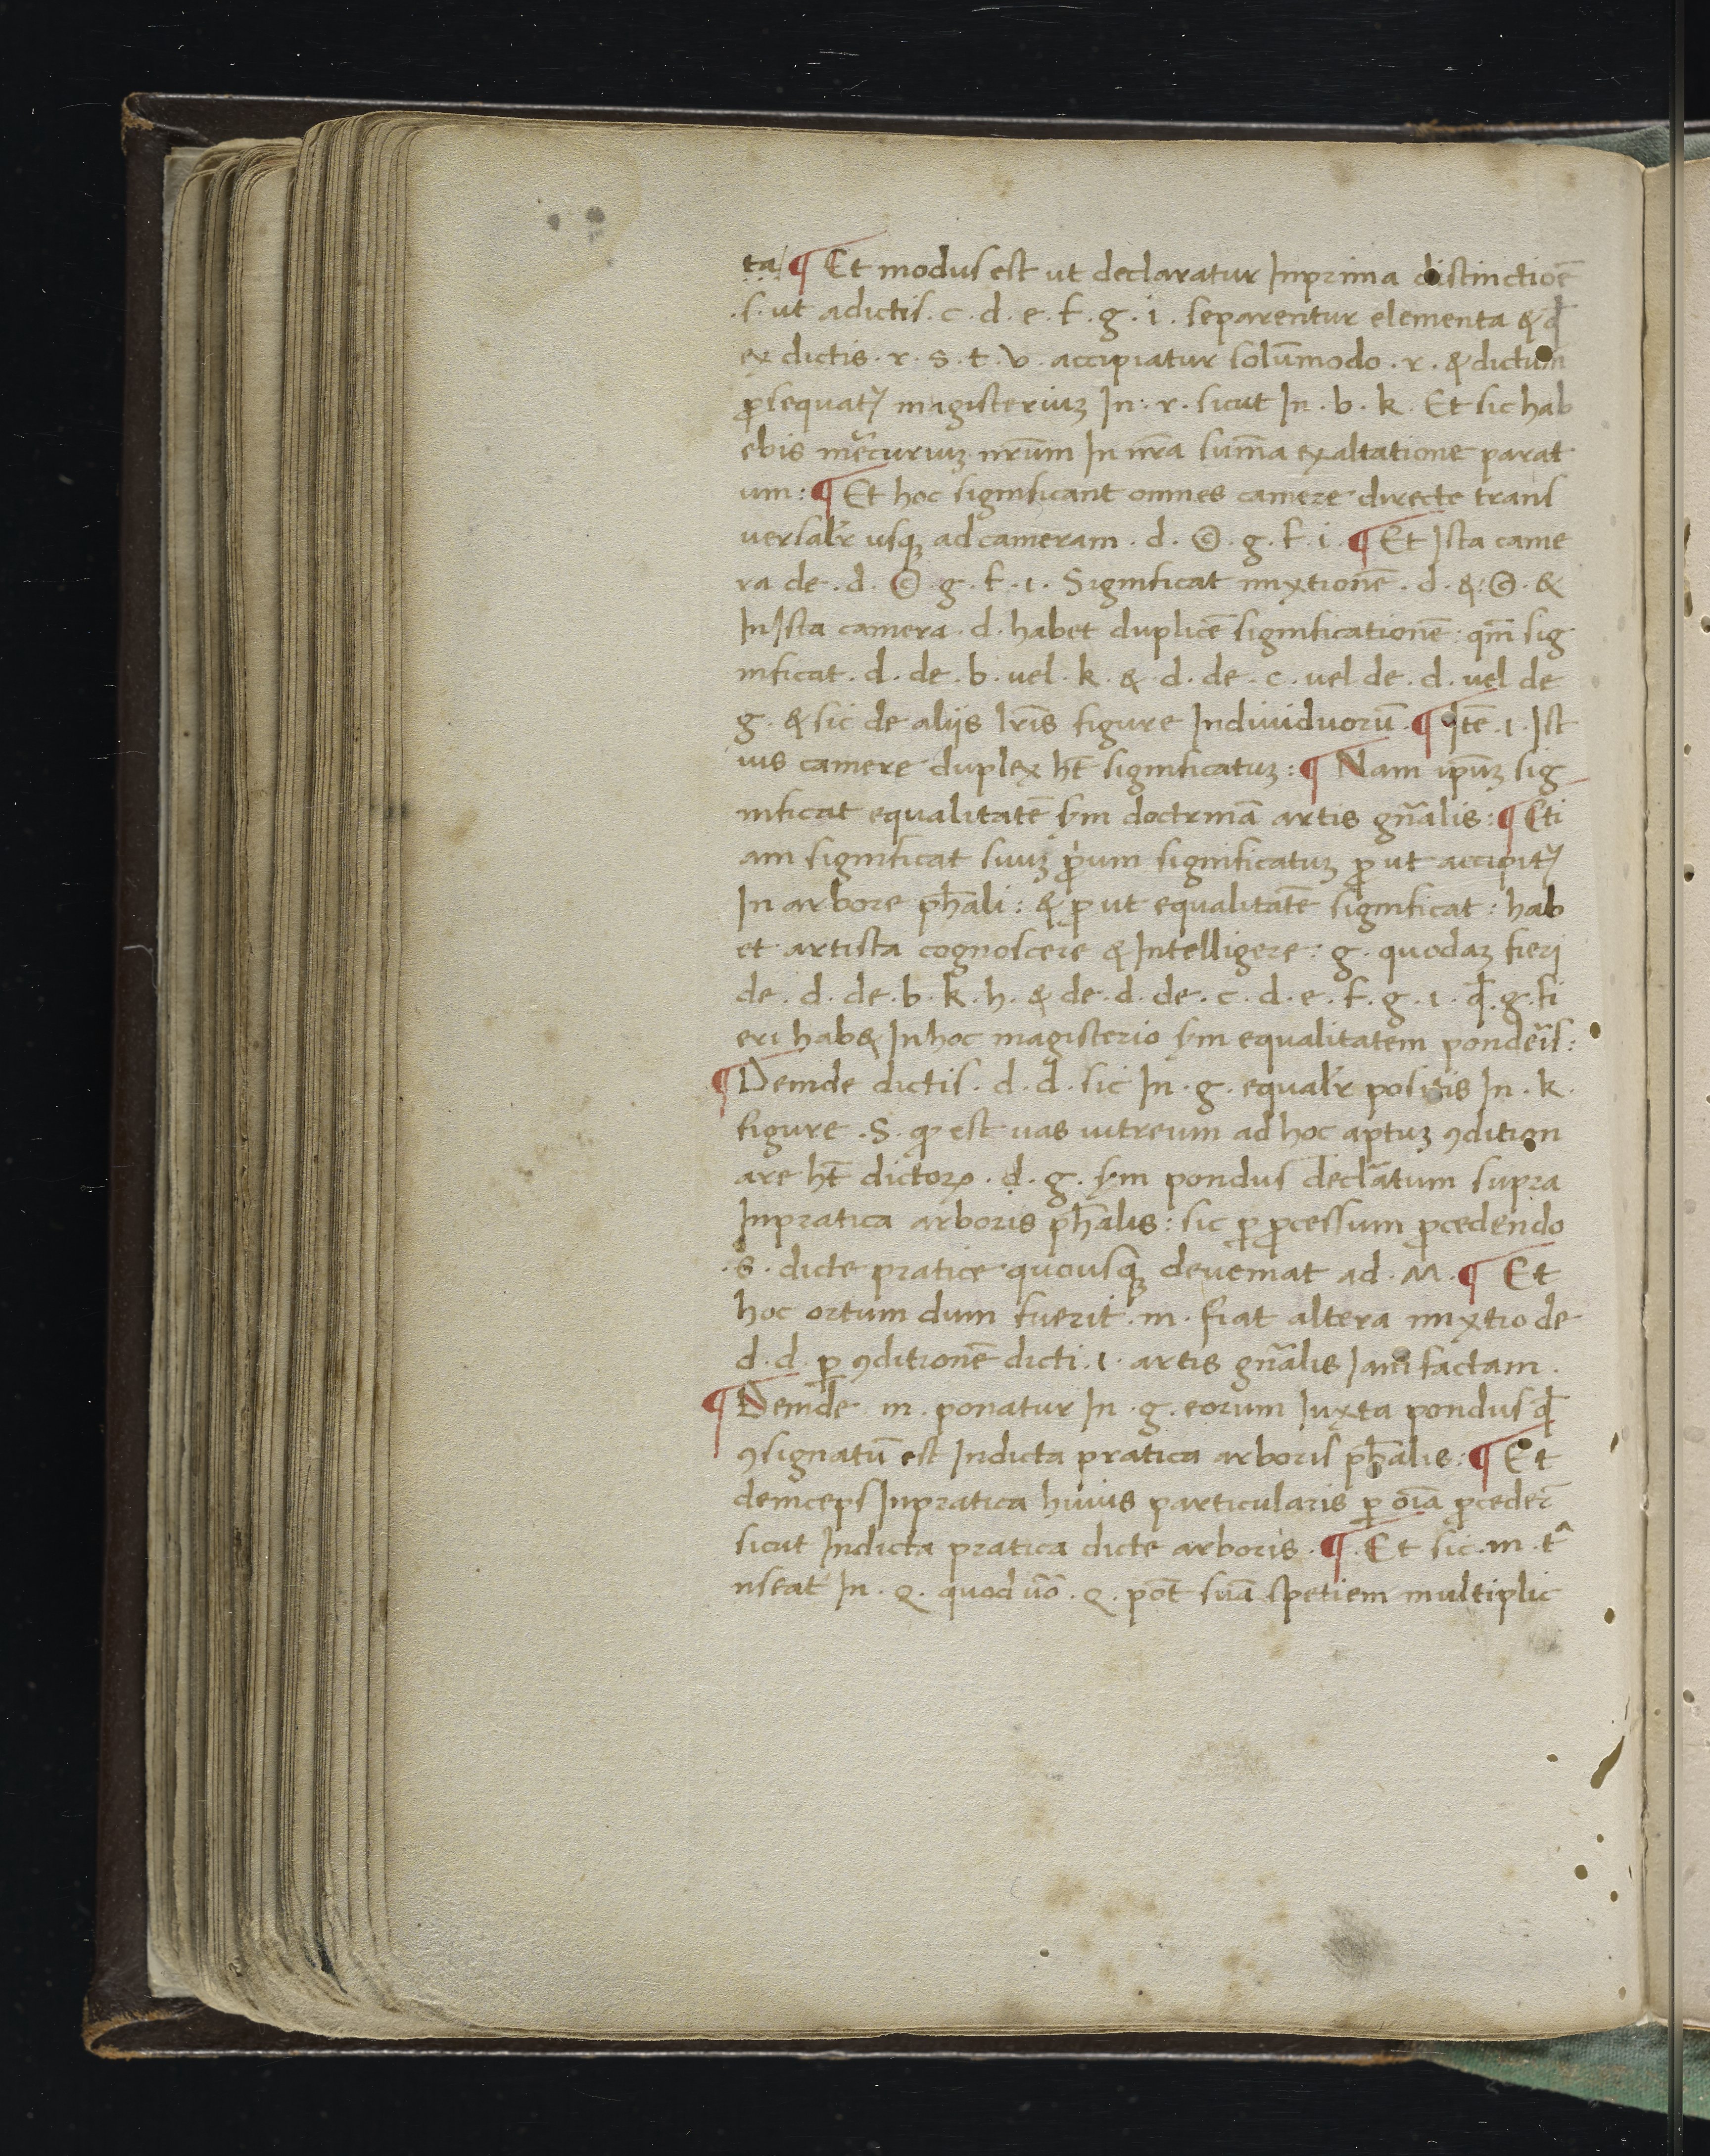 ta/ ¶ Et modus est ut declaratur Inprima distinctiōe
.s. ut adictis. c. d. e. f. g. i. separentur elementa & qđ
ex dictis. r. s. t. v. accipiatur solūmodo. r. & dictum
ꝓsequatꝛ magisteriuꝫ In. r. sicut In. b. k. Et sic hab
ebis mẽcuriuꝫ nr̄um In nr̄a sum̄a exaltatione parat
um: ¶ Et hoc significant omnes camere directe trans
uersalr̃ usqꝫ ad cameram. d. ©. g. f. i. ¶ Et Ista came
ra de. d. ©. g. f. i. Significat mixtionē. d. & ©. &
In Ista camera. d. habet duplicē significationē: qm̄ sig
nificat. d. de. b. uel. k. & d. de. c. uel de. d. uel de
g. & sic de aliis lr̄is figure Indiuiduorū. ¶ Itē. i. Ist
ius camere duplex ht̄ significatuꝫ: ¶ Nam ipūꝫ sig
nificat equalitatē sꝫm doctrinā artis gñalis: ¶ Eti
am significat suuꝫ ꝓ̇ium significatuꝫ ꝓ ut accipitꝛ
In arbore ph̄ali: & ꝓ ut equalitatē significat: hab
et artista cognoscere & Intelligere: g. quodaꝫ fieri
de. d. de. b. k. h. & de. d. de. c. d. e. f. g. i. qđ. g. fi
eri hab& In hoc magisterio sꝫm equalitatem pondẽis:
¶ Deinde dictis. d. d. sic In. g. equalr̃ positis In. k.
figure. S. qđ est uas uitreum ad hoc aptuꝫ ꝯdition
are ht̄ dictoꝝ. d. g. sꝫm pondus declãtum supra
Inpratica arboris ph̄alis: sic ꝑ ꝓcessum ꝓcedendo
.s. dicte pratice quousqꝫ deueniat ad. M. ¶ Et
hoc ortum dum fuerit. m. fiat altera mixtio de
d. d. ꝑ ꝯditionē dicti. i. artis gñalis Iam factam.
¶ Deinde m. ponatur In. g. eorum Iuxta pondus qđ
ꝯsignatū est Indicta pratica arboris ph̄alis: ¶ Et
deinceps Inpratica huius particularis ꝑ oīa ꝓceder̄
sicut Indicta pratica dicte arboris. ¶ Et sic. m. tᵃ
nseat In. Q. quod uō. Q. pōt suā spetiem multiplic